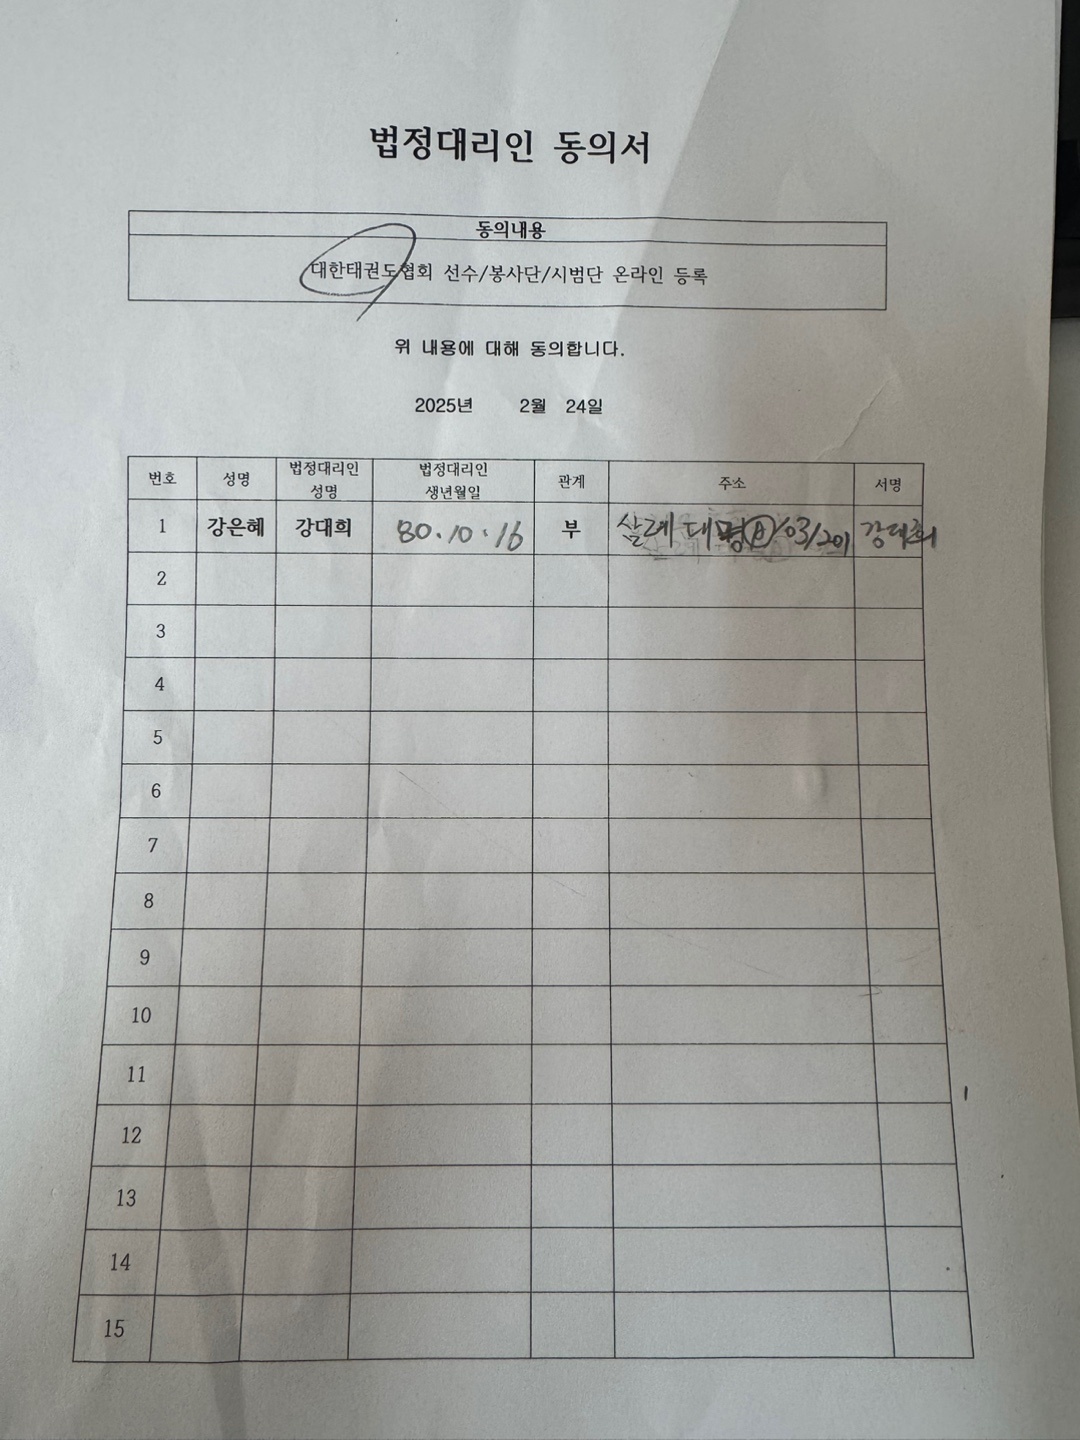 법정대리인 동의서
동의내용
대한태권도협회 선수/봉사단/시범단 온라인 등록
위 내용에 대해 동의합니다.
2025년 2월 24일
번호 성명 법정대리인 성명 법정대리인 생년월일 관계 주소 서명
1 강은혜 강대희 80.10.16 부 대명 103/201 강대희
2
3
4
5
6
7
8
9
10
11
12
13
14
15